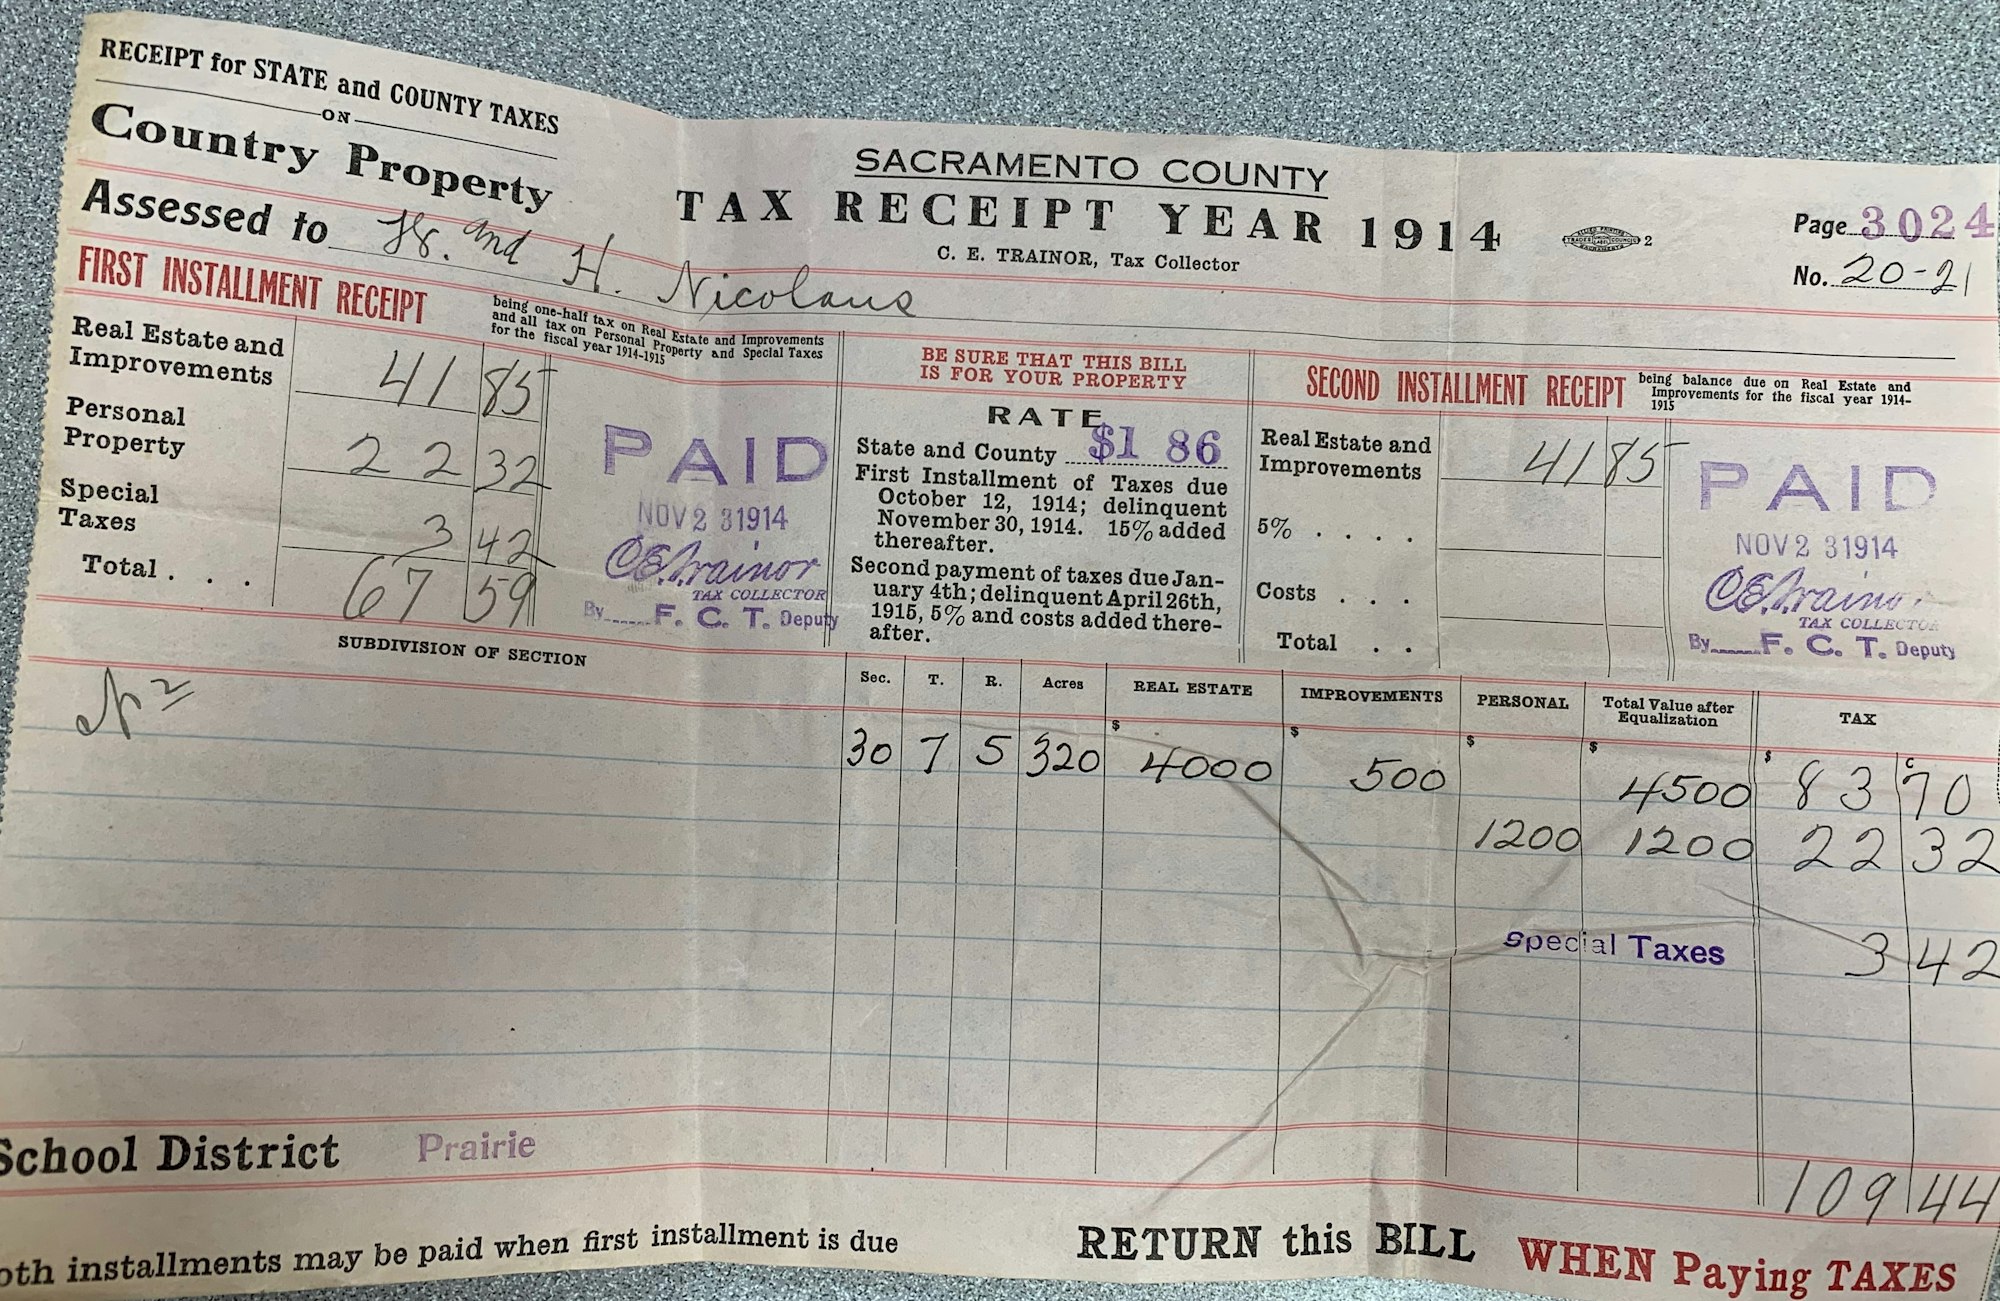 RECEIPT for STATE and COUNTY TAXES
ON
Country Property
Assessed to and H. Nicolaus
SACRAMENTO COUNTY
TAX RECEIPT YEAR 1914
C. E. TRAINOR, Tax Collector
ALLIED PRINTING
TRADES UNION LABEL COUNCIL
SACRAMENTO
2
Page 3024
No. 20-21
FIRST INSTALLMENT RECEIPT
being one-half tax on Real Estate and Improvements
and all tax on Personal Property and Special Taxes
for the fiscal year 1914-1915
Real Estate and
Improvements 41 85
Personal
Property 22 32
Special
Taxes 3 42
Total . . . 67 59
PAID
NOV 2 3 1914
C.E. Trainor
TAX COLLECTOR
By F. C. T. Deputy
BE SURE THAT THIS BILL
IS FOR YOUR PROPERTY
RATE
State and County $1 86
First Installment of Taxes due
October 12, 1914; delinquent
November 30, 1914. 15% added
thereafter.
Second payment of taxes due Jan-
uary 4th; delinquent April 26th,
1915, 5% and costs added there-
after.
SECOND INSTALLMENT RECEIPT
being balance due on Real Estate and
Improvements for the fiscal year 1914-
1915
Real Estate and
Improvements 41 85
5% . . . .
Costs . . .
Total . .
PAID
NOV 2 3 1914
C.E. Trainor
TAX COLLECTOR
By F. C. T. Deputy
SUBDIVISION OF SECTION
Sec. T. R. Acres REAL ESTATE IMPROVEMENTS PERSONAL Total Value after Equalization TAX
$ $ $ $ $ c
N 2 30 7 5 320 4000 500 4500 83 70
1200 1200 22 32
Special Taxes 3 42
109 44
School District Prairie
oth installments may be paid when first installment is due
RETURN this BILL WHEN Paying TAXES